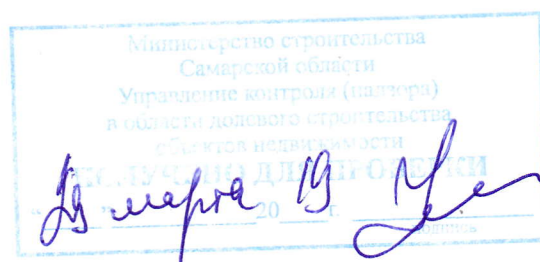 Министерство строительства
Самарской области
Управление контроля (надзора)
в области долевого строительства
объектов недвижимости
ПОЛУЧЕНО ДЛЯ ПРОВЕРКИ
" 29 " марта 20 19 г.
подпись